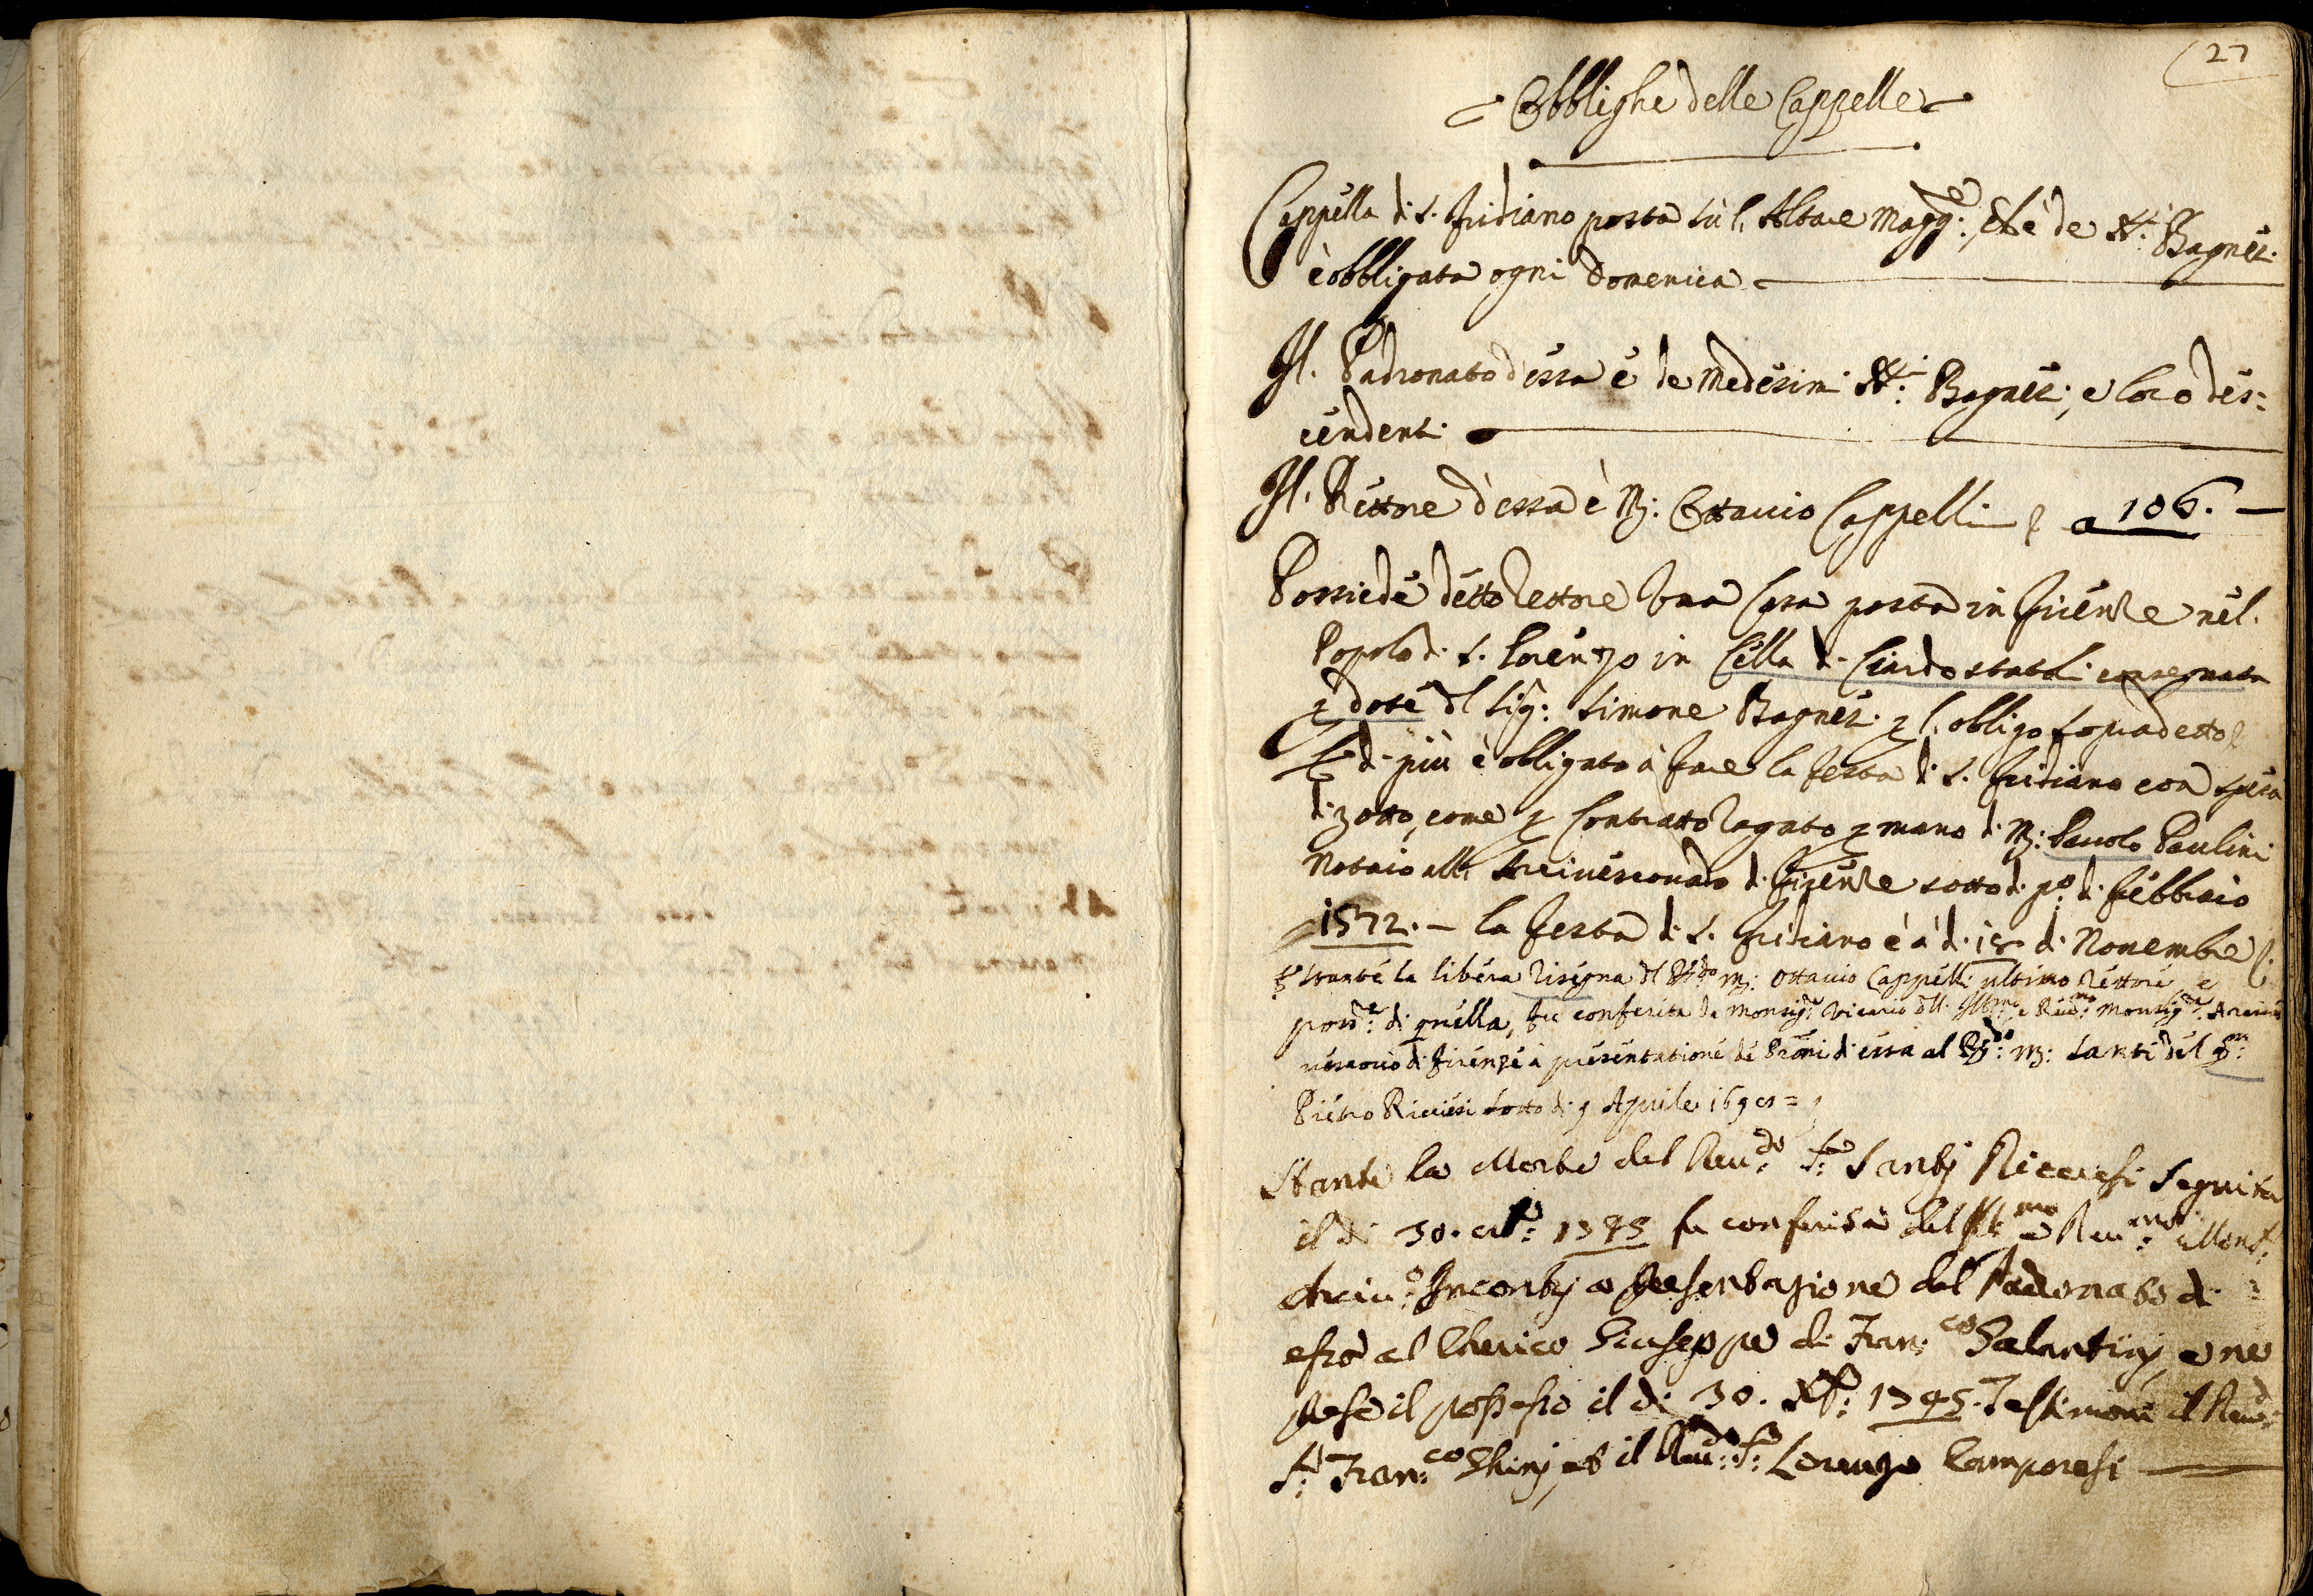 27
Obblighe delle Cappelle
Cappella di S. Fridiano posta sù l'Altare Magg.re, ch'è de SS.ri Bagnesi
è obbligata ogni Domenica
Il Padronato d'essa è de medesimi SS.ri Bagnesi, e loro des=
cendenti
Il Rettore d'essa è M: Ottavio Cappelli a 106. —
Possiede detto Rettore una Casa posta in Firenze nel
Popolo di S. Lorenzo in Cella di Ciardo statali consegnata
p dote dl Sig: Simone Bagnesi p l'obligo sopradetto
E di più è obligato à fare la festa di S. Fridiano con spesa
di 30tto, come p Contratto rogato p mano di M: Pauolo Paulini
Notaio all' Arciuescouado di Firenze sotto di p.o di Febbraio
1572. — la festa di S. Fridiano è à di 18 di Nouembre
Stante la libera risegna dl R.do M: Ottauio Cappelli ultimo Rettore, e
poss.re di quella, fu conferita da Monsig.re Vicario dll' Ill.mo e Reu.mo Monsig.re Arciue
uescouo di Firenze à presentatione de Proni di essa al R.do M: Santi del qm
Pietro Riccesi sotto di 9 Aprile
Stante la Morte del Reu.do S.r Santi Riccesi seguita
il di 30. 1745 fu conferita dal Ill.mo e Reu.mo Mons.r
Arciu.o Incontrj a Presentazione del Padronato di
esso al Cherico Giuseppe di Fran.co Salantinj, e ne
prese il possesso il di 30. Xbre 1745. Testimoni il Reud.
S.r Fran.co Ghinj et il Reu.do S.r Lorenzo Camporesi